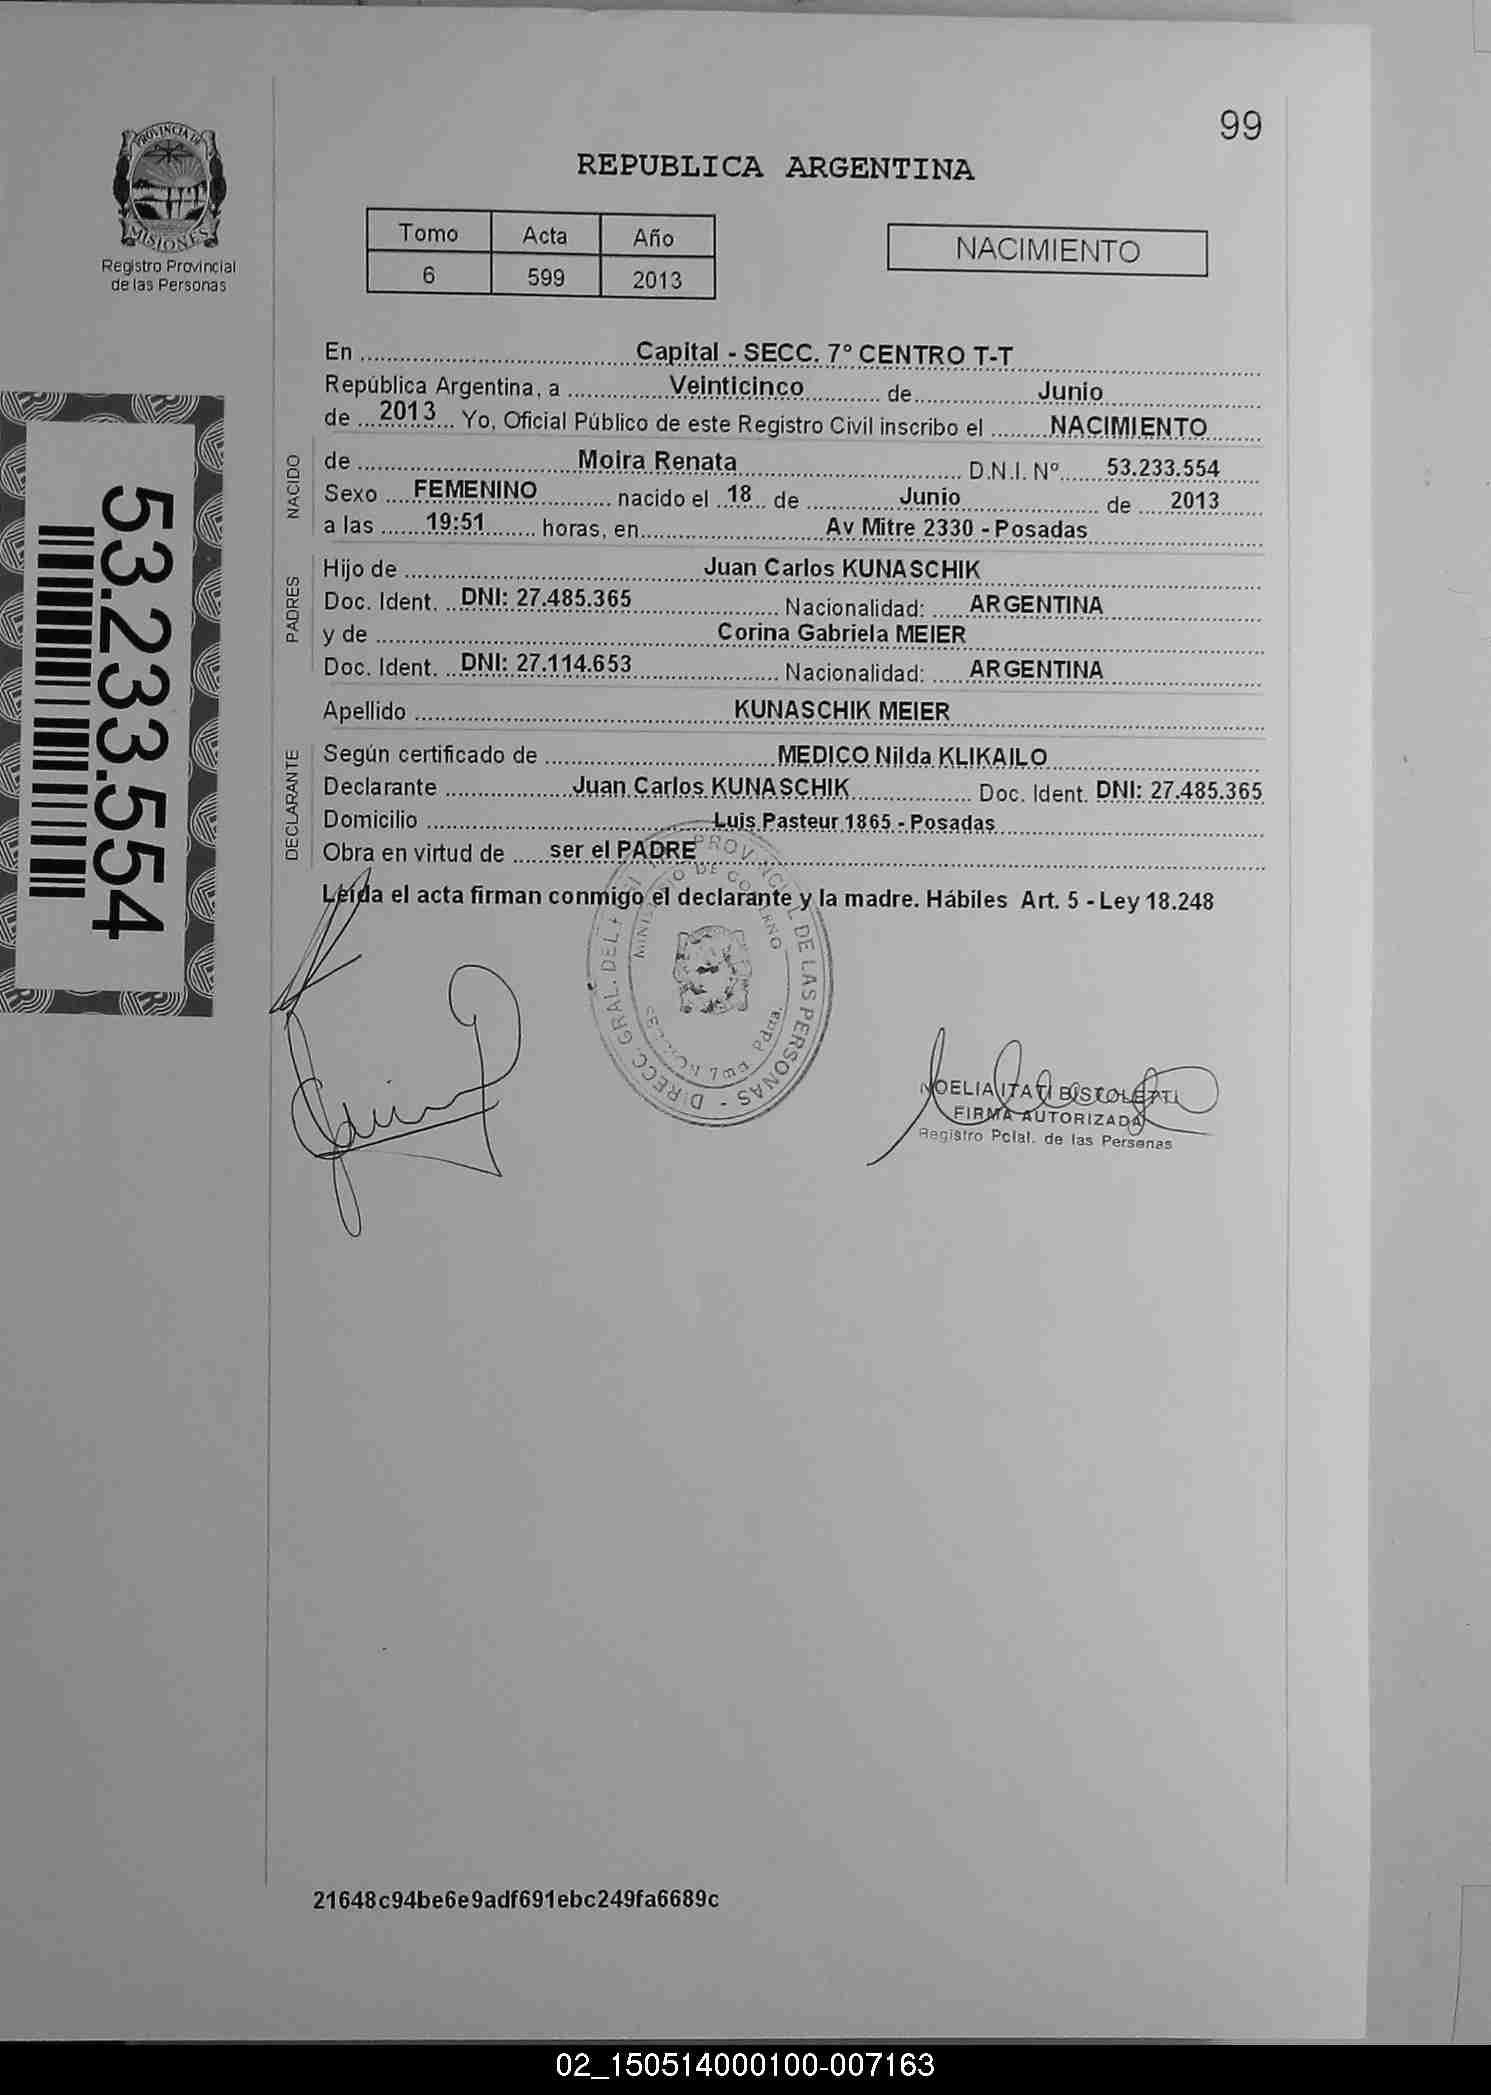 99
PROVINCIA DE
MISIONES
Registro Provincial
de las Personas
REPUBLICA ARGENTINA
Tomo Acta Año
6 599 2013
NACIMIENTO
53.233.554
En Capital - SECC. 7° CENTRO T-T
República Argentina, a Veinticinco de Junio
de 2013 Yo, Oficial Público de este Registro Civil inscribo el NACIMIENTO
NACIDO
de Moira Renata D.N.I. Nº 53.233.554
Sexo FEMENINO nacido el 18 de Junio de 2013
a las 19:51 horas, en Av Mitre 2330 - Posadas
PADRES
Hijo de Juan Carlos KUNASCHIK
Doc. Ident. DNI: 27.485.365 Nacionalidad: ARGENTINA
y de Corina Gabriela MEIER
Doc. Ident. DNI: 27.114.653 Nacionalidad: ARGENTINA
Apellido KUNASCHIK MEIER
DECLARANTE
Según certificado de MEDICO Nilda KLIKAILO
Declarante Juan Carlos KUNASCHIK Doc. Ident. DNI: 27.485.365
Domicilio Luis Pasteur 1865 - Posadas
Obra en virtud de ser el PADRE
Leída el acta firman conmigo el declarante y la madre. Hábiles Art. 5 - Ley 18.248
DIRECC. GRAL. DEL PROVINCIAL DE LAS PERSONAS -
MINISTERIO DE GOBIERNO
Pdas.
NOELIA ITATI BISTOLETTI
FIRMA AUTORIZADA
Registro Pcial. de las Personas
21648c94be6e9adf691ebc249fa6689c
02_150514000100-007163